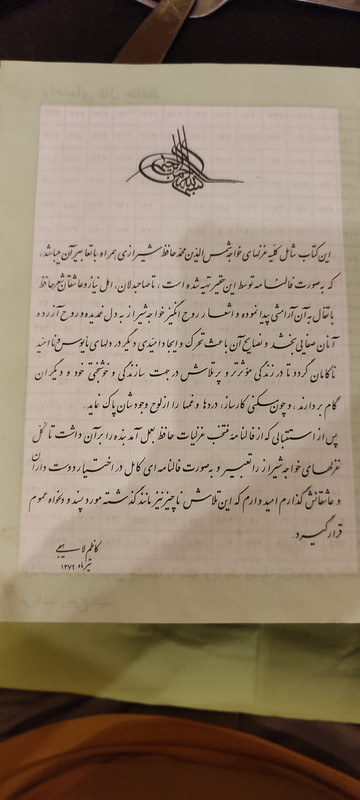 بسم الله الرحمن الرحیم
این کتاب شامل کلیه غزلهای خواجه شمس الدین محمد حافظ شیرازی همراه با تعابیر آن میباشد،
که به صورت فالنامه توسط این حقیر تهیه شده است، تا صاحبدلان، اهل نیاز و عاشقان شعر حافظ
با تفال به آن آرامشی پیدا نموده و اشعار روح انگیز خواجه شیراز به دل غمدیده و روح آزرده
آنان صفایی بخشد و نصایح آن باعث تحرک و ایجاد امیدی دیگر در دلهای مایوس و ناامید
ناکامان گردد تا در زندگی مؤثرتر و پرتلاش در جهت سازندگی و خوشبختی خود و دیگران
گام بردارند، و چون مسکنی کارساز، دردها و غمها را از لوح وجودشان پاک نماید.
پس از استقبالی که از فالنامهٔ منتخب غزلیات حافظ بعمل آمد بنده را بر آن داشت تا کل
غزلهای خواجه شیراز را تعبیر و به صورت فالنامه ای کامل در اختیار دوست داران
و عاشقانش گذارم امیدوارم که این تلاش ناچیز نیز مانند گذشته مورد پسند و دلخواه عموم
قرار گیرد.
کاظم لاهیجی
تیرماه ۱۳۷۹